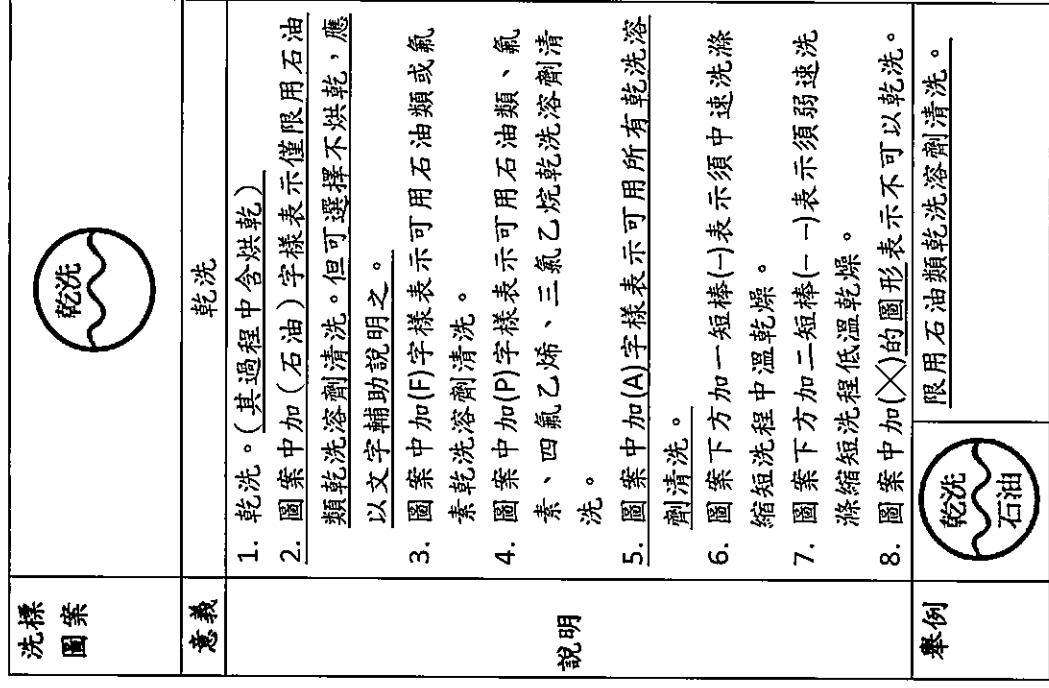 洗標
圖案
乾洗
意義
乾洗
說明
1. 乾洗。(其過程中含烘乾)
2. 圖案中加(石油)字樣表示僅限用石油
類乾洗溶劑清洗。但可選擇不烘乾,應
以文字輔助說明之。
3. 圖案中加(F)字樣表示可用石油類或氟
素乾洗溶劑清洗。
4. 圖案中加(P)字樣表示可用石油類、氟
素、四氯乙烯、三氯乙烷乾洗溶劑清
洗。
5. 圖案中加(A)字樣表示可用所有乾洗溶
劑清洗。
6. 圖案下方加一短棒(—)表示須中速洗滌
縮短洗程中溫乾燥。
7. 圖案下方加二短棒(— —)表示須弱速洗
滌縮短洗程低溫乾燥。
8. 圖案中加(╳)的圖形表示不可以乾洗。
舉例
乾洗
石油
限用石油類乾洗溶劑清洗。